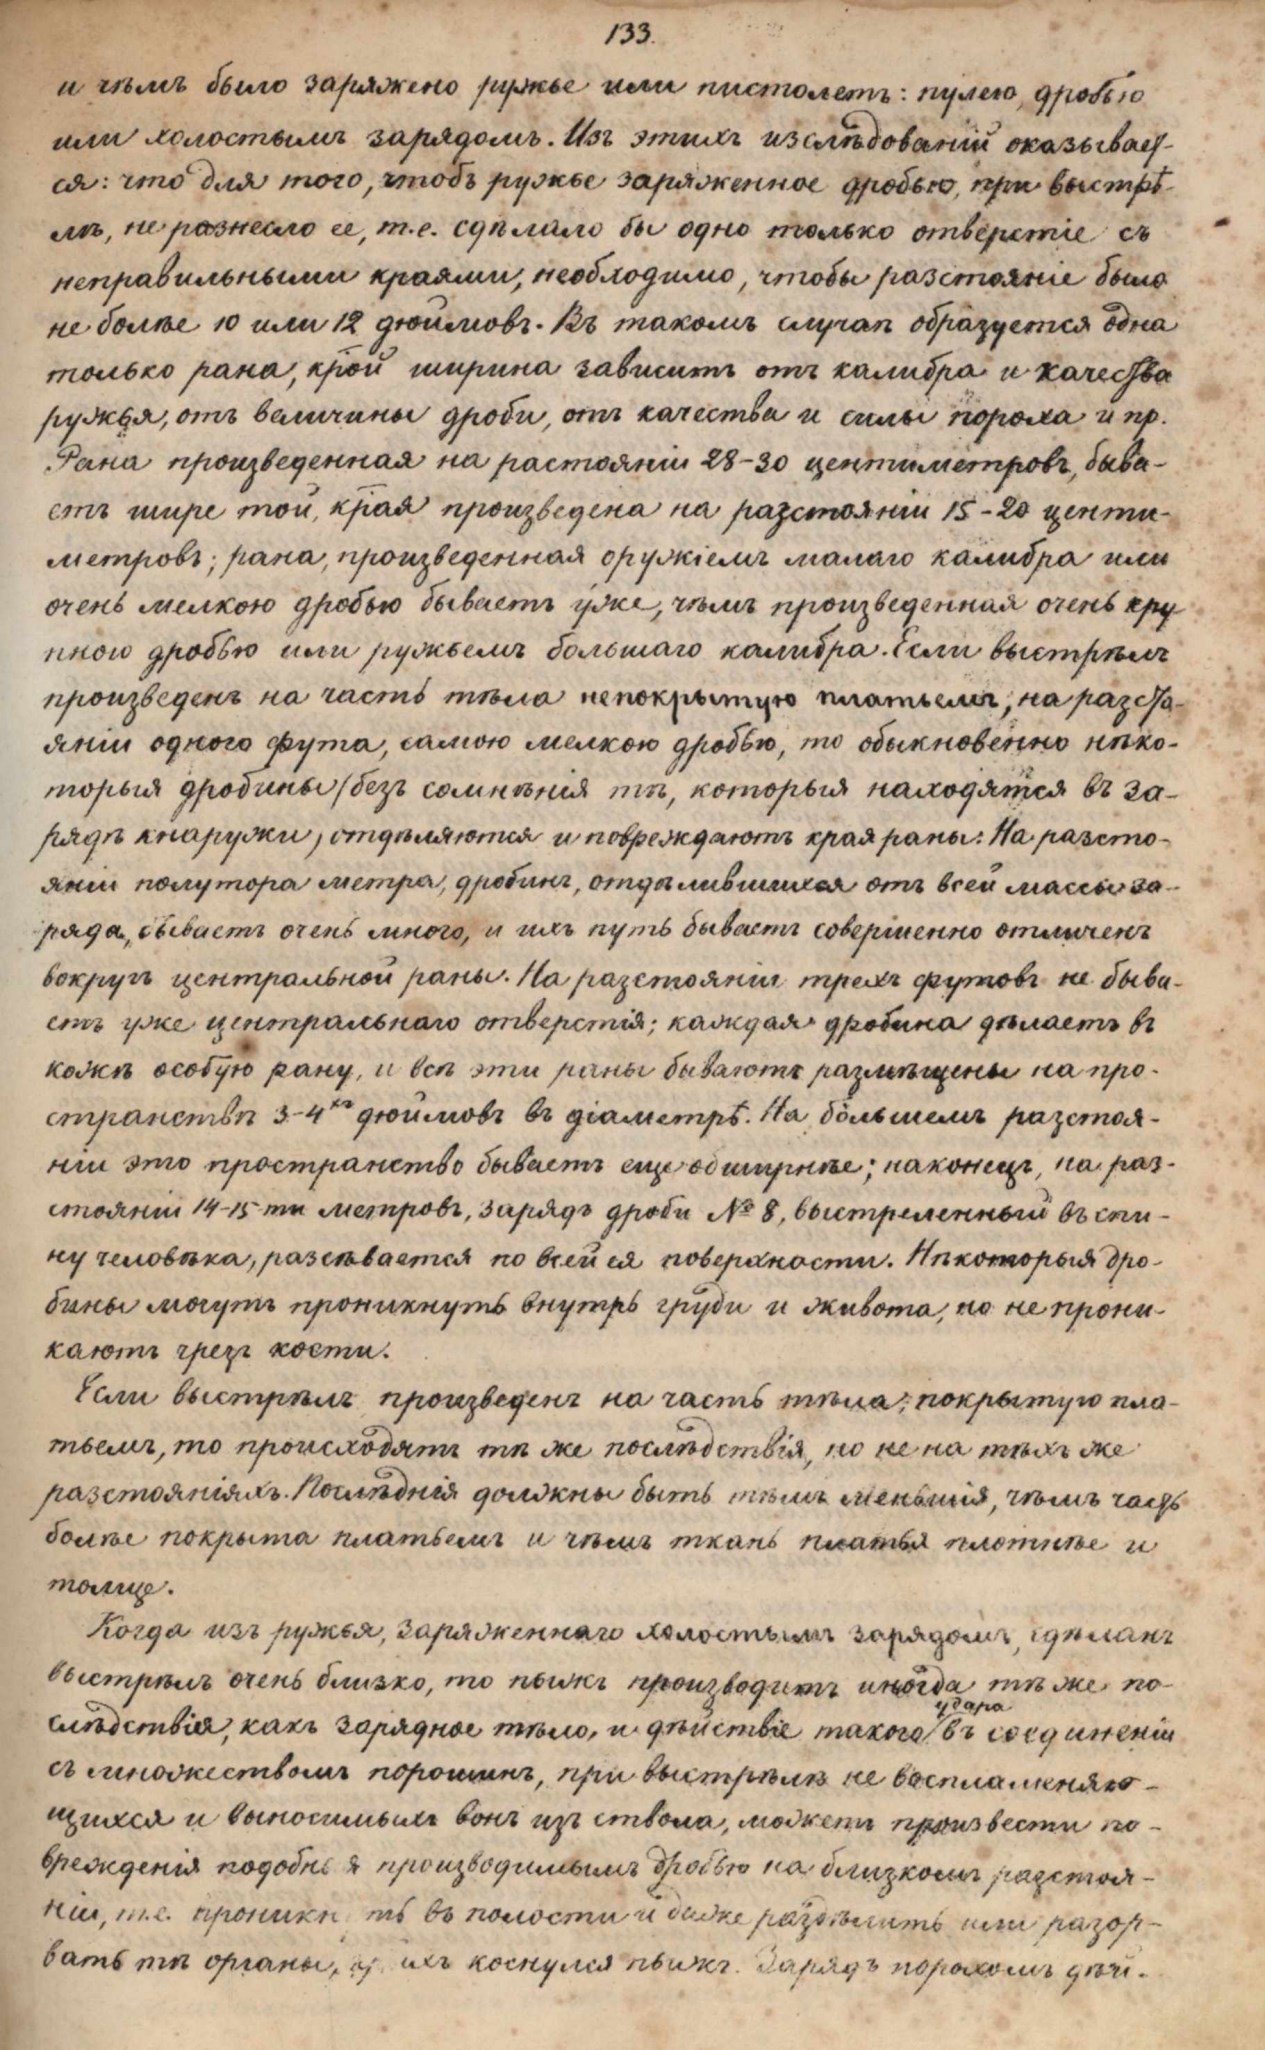 133.
и чѣмъ было заряжено ружье или пистолетъ: пулею, дробью
или холостымъ зарядомъ. Изъ этихъ изслѣдованій оказывает-
ся: что для того, чтобъ ружье заряженное дробью, при выстрѣ-
лѣ, не разнесло ее, т.е. сдѣлало бы одно только отверстіе съ
неправильными краями, необходимо, чтобы разстояніе было
не болѣе 10 или 12 дюймовъ. Въ такомъ случаѣ образуется одна
только рана, крой ширина зависитъ отъ калибра и качества
ружья, отъ величины дроби, отъ качества и силы пороха и пр.
Рана произведенная на растояніи 28-30 центиметровъ, быва-
етъ шире той, край произведена на разстояніи 15-20 центи-
метровъ; рана, произведенная оружіемъ малаго калибра или
очень мелкою дробью бываетъ уже, чѣмъ произведенная очень кру
пною дробью или ружьемъ большаго калибра. Если выстрѣлъ
произведенъ на часть тѣла непокрытую платьемъ, на разста-
яніи одного фута, самою мелкою дробью, то обыкновенно нѣко-
торыя дробины (безъ сомнѣнія тѣ, которыя находятся въ за-
рядѣ кнаружи) отдѣляются и повреждаютъ края раны. На разсто-
яніи полутора метра, дробинъ, отдѣлившихся отъ всей массы за-
ряда, бываетъ очень много, и ихъ путь бываетъ совершенно отличенъ
вокругъ центральной раны. На разстояніи трехъ футовъ не быва-
етъ уже центральнаго отверстія; каждая дробина дѣлаетъ въ
кожѣ особую рану, и всѣ эти раны бываютъ размѣщены на про-
странствѣ 3-4хъ дюймовъ въ діаметрѣ. На большемъ разстоя-
ніи это пространство бываетъ еще обширнѣе; наконецъ, на раз-
стояніи 14-15-ти метровъ, зарядъ дроби № 8, выстреленный въ спи-
ну человѣка, разсѣвается по всей ея поверхности. Нѣкоторыя дро-
бины могутъ проникнуть внутрь груди и живота, но не прони-
каютъ чрезъ кости.
Если выстрѣлъ произведенъ на часть тѣла, покрытую пла-
тьемъ, то происходятъ тѣ же послѣдствія, но не на тѣхъ же
разстояніяхъ. Послѣднія должны быть тѣмъ меньшія, чѣмъ часть
болѣе покрыта платьемъ и чѣмъ ткань платья плотнѣе и
толще.
Когда изъ ружья, заряженнаго холостымъ зарядомъ, сдѣланъ
выстрѣлъ очень близко, то пыжъ производитъ иногда тѣ же по-
слѣдствія, какъ зарядное тѣло, и дѣйствіе такого удара въ соединеніи
съ множествомъ порошинъ, при выстрѣлѣ не воспламеняю-
щихся и выносимыхъ вонъ изъ ствола, можетъ произвести по-
врежденія подобныя производимымъ дробью на близкомъ разстоя-
ніи, т.е. проникнуть въ полости и даже раздѣлить или разор-
вать тѣ органы, ихъ коснулся пыжъ. Зарядъ порохомъ дѣй-